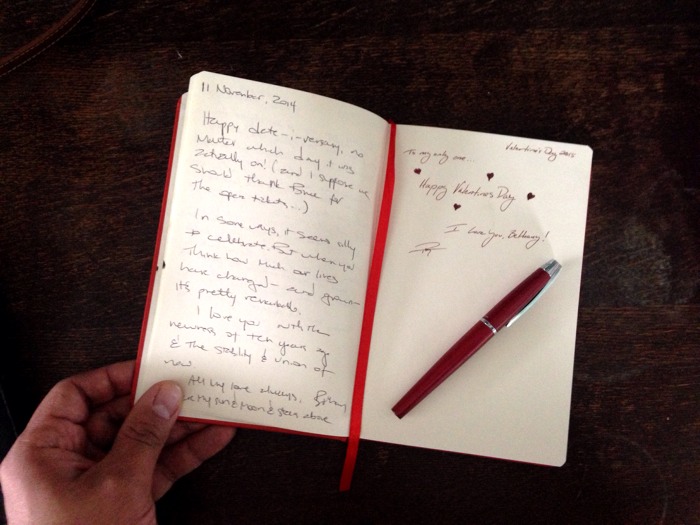 11 November, 2014
Happy date-i-versary, no
matter which day it was
actually on! (and I suppose we
should thank for
the open tickets...)
In some ways, it seems silly
to celebrate. But when you
think how much our lives
have changed - and grown -
it's pretty remarkable.
I love you with the
newness of ten years ago
& the stability & union of
now.
All my love always, Bethany
my sun & moon & stars above
Valentine's Day 2015
To my only one...
Happy Valentine's Day
I love you, Bethany!